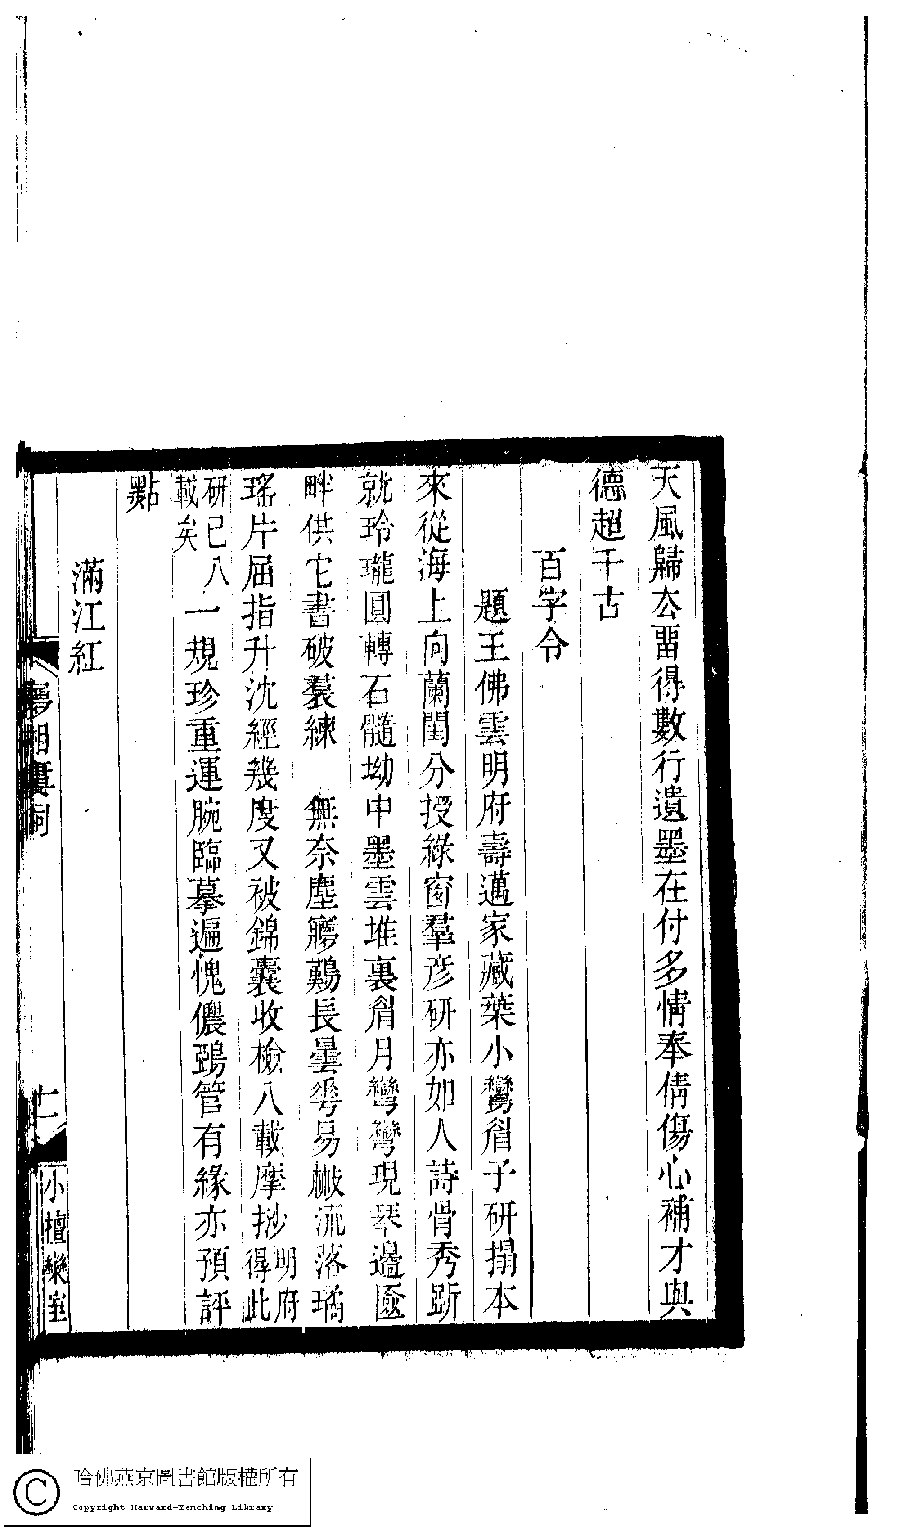 天風歸去畱得數行遺墨在付多情奉倩傷心補才與
德超千古
百字令
題王佛雲明府壽邁家藏葉小鸞眉子研搨本
來從海上向蘭閨分授綠窗羣彦研亦如人詩骨秀斲
就玲瓏圓轉石髓坳中墨雲堆裏眉月彎彎現琴邊匳
畔供它書破裠練　無奈塵夢䳘長曇雩易檄流落璚
瑤片屈指升沈經幾度又被錦囊收檢八載摩挱明府得此
研已八載矣一規珍重運腕臨摹遍愧儂鵶管有緣亦預評
點
滿江紅
夢湘樓詞
小檀欒室
哈佛燕京圖書館版權所有
Copyright Harvard-Yenching Library